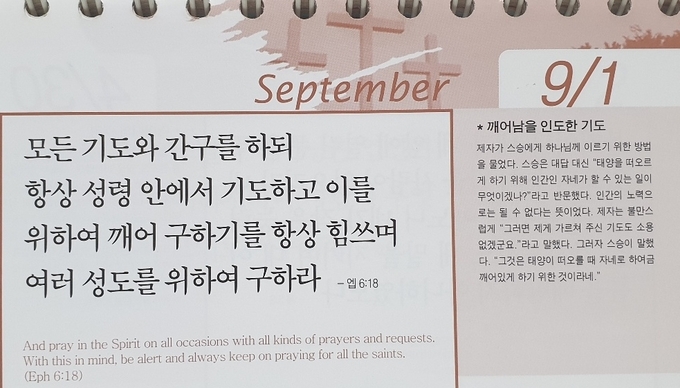 September
9/1
모든 기도와 간구를 하되
항상 성령 안에서 기도하고 이를
위하여 깨어 구하기를 항상 힘쓰며
여러 성도를 위하여 구하라 – 엡 6:18
And pray in the Spirit on all occasions with all kinds of prayers and requests.
With this in mind, be alert and always keep on praying for all the saints.
(Eph 6:18)
* 깨어남을 인도한 기도
제자가 스승에게 하나님께 이르기 위한 방법
을 물었다. 스승은 대답 대신 "태양을 떠오르
게 하기 위해 인간인 자네가 할 수 있는 일이
무엇이겠나?"라고 반문했다. 인간의 노력으
로는 될 수 없다는 뜻이었다. 제자는 불만스
럽게 "그러면 제게 가르쳐 주신 기도도 소용
없겠군요."라고 말했다. 그러자 스승이 말했
다. "그것은 태양이 떠오를 때 자네로 하여금
깨어있게 하기 위한 것이라네."